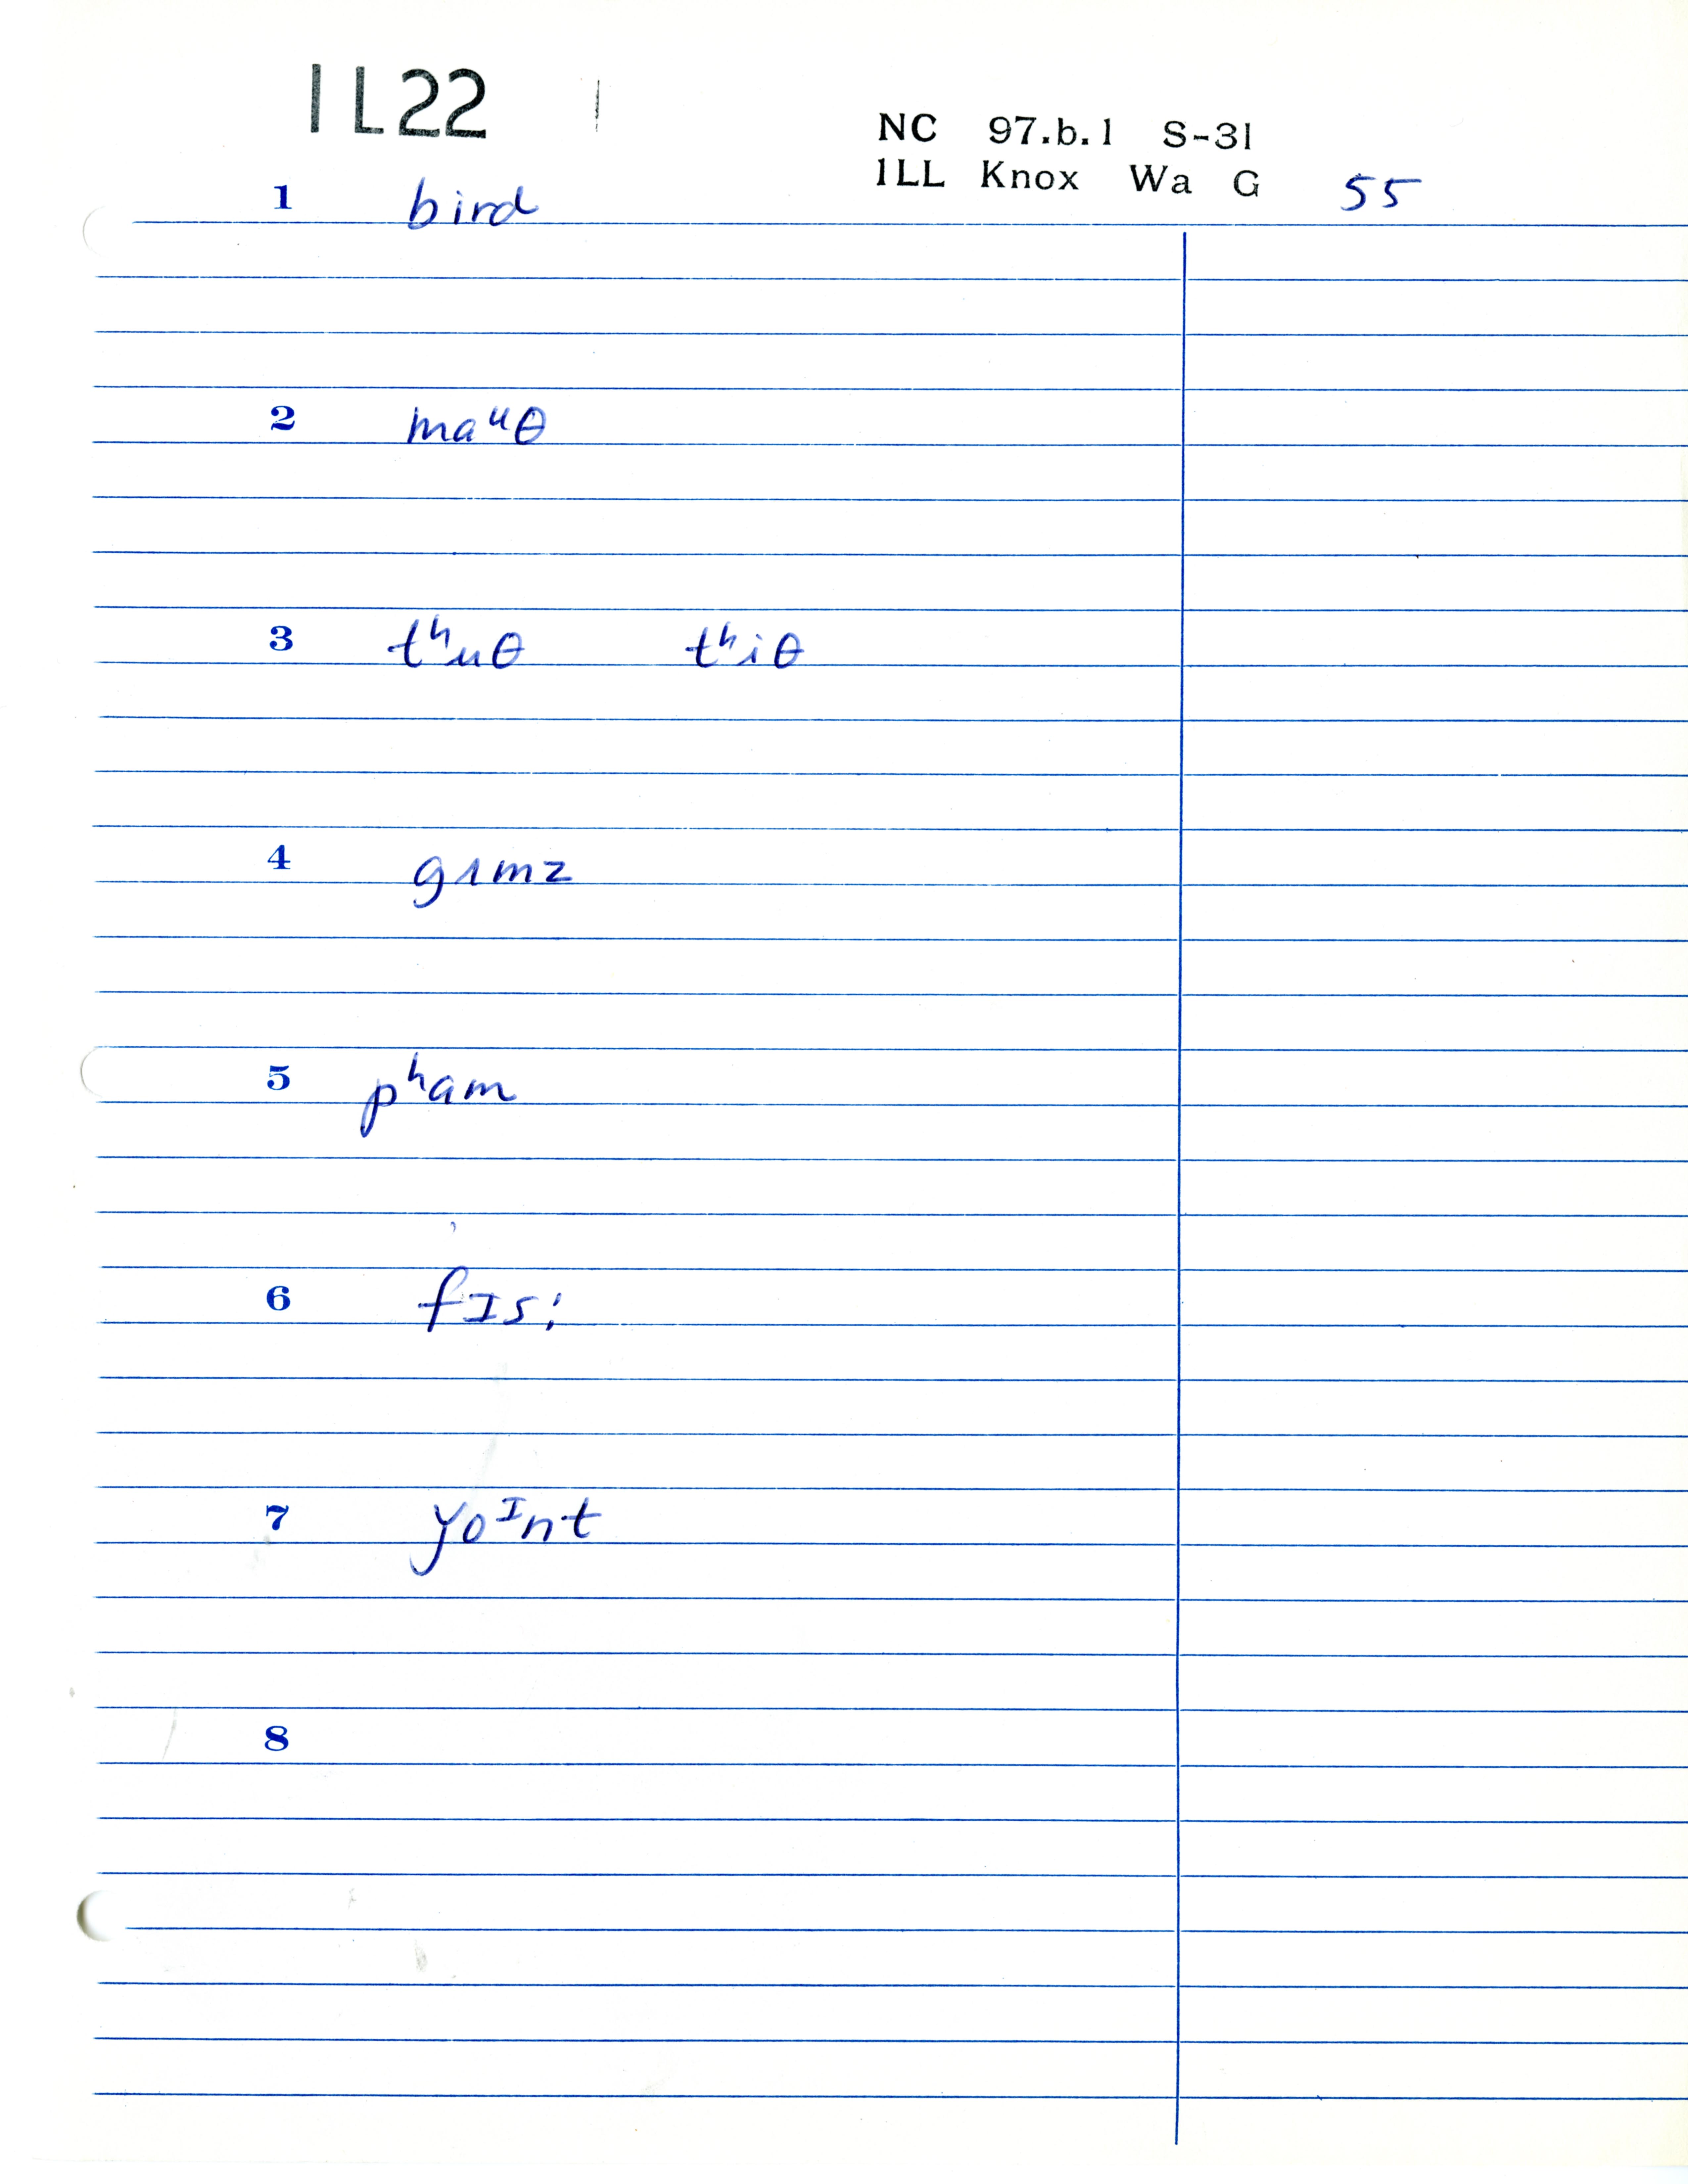 1L22 |
NC 97.b.1 S-31
1LL Knox Wa G 55
1 bird
2 maᵘθ
3 tʰuθ tʰiθ
4 gʌmz
5 pʰam
6 fɪs;
7 yoᴵnt
8